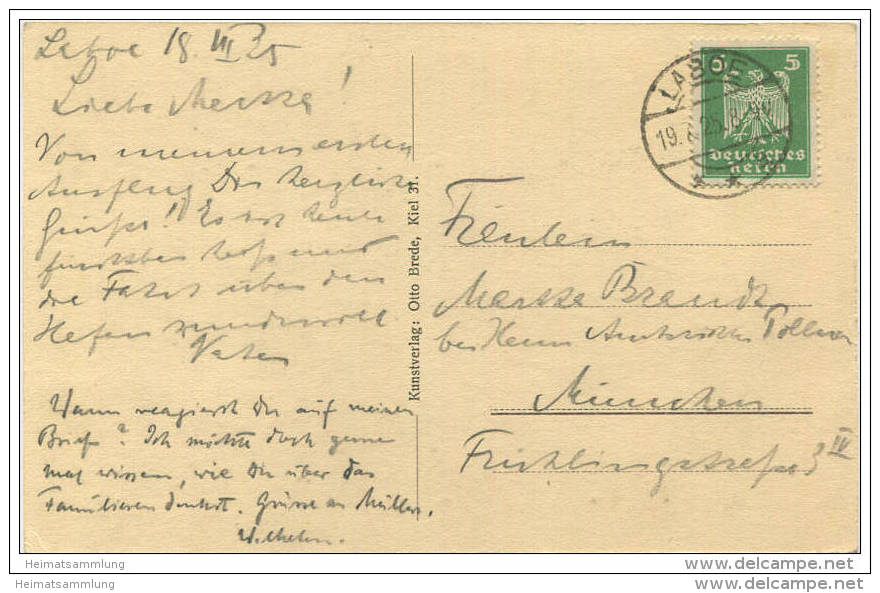 Laboe 18. VII 25
Liebe Marska!
Von meinem ersten
Ausflug Dir herzliche
Grüsse! Es ist heute
furchtbar heiss und
die Fahrt über den
Hafen wundervoll
Vater
Wann reagierst Du auf meinen
Brief? Ich möchte doch gerne
mal wissen, wie Du über das
Familieren denkst. Grüsse an Müllers.
Wilhelm.
Kunstverlag: Otto Brede, Kiel 31.
LABOE
19. 25. 8
5 5
Deutsches
Reich
Fräulein
Brandt
bei Herrn Amtsrichter
München
Frühlingstrasse 3 IV
Heimatsammlung
Heimatsammlung
www.delcampe.net
www.delcampe.net